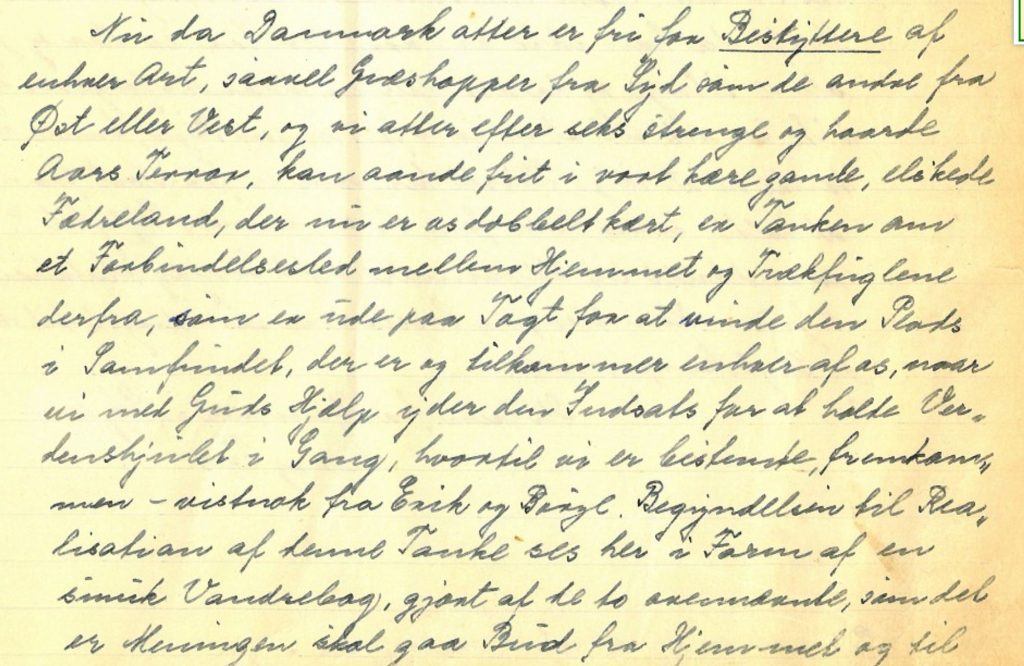 Nu da Danmark atter er fri for Beskyttere af
enhver Art, saavel Græshopper fra Syd som de andre fra
Øst eller Vest, og vi atter efter seks strenge og haarde
Aars Terror, kan aande frit i vort kære gamle, elskede
Fædreland, der nu er os dobbelt kært, er Tanken om
et Forbindelsested mellem Hjemmet og Trækfuglene
derfra, som er ude paa Togt for at vinde den Plads
i Samfundet, der er og tilkommer enhver af os, naar
vi med Guds Hjælp yder den Indsats for at holde Ver„
denshjulet i Gang, hvortil vi er bestemte, fremkom„
men – vistnok fra Erik og Børge. Begyndelsen til Rea„
lisation af denne Tanke ses her i Form af en
smuk Vandrebog, gjort af de to ovennævnte, som det
er Meningen skal gaa Bud fra Hjemmet og til